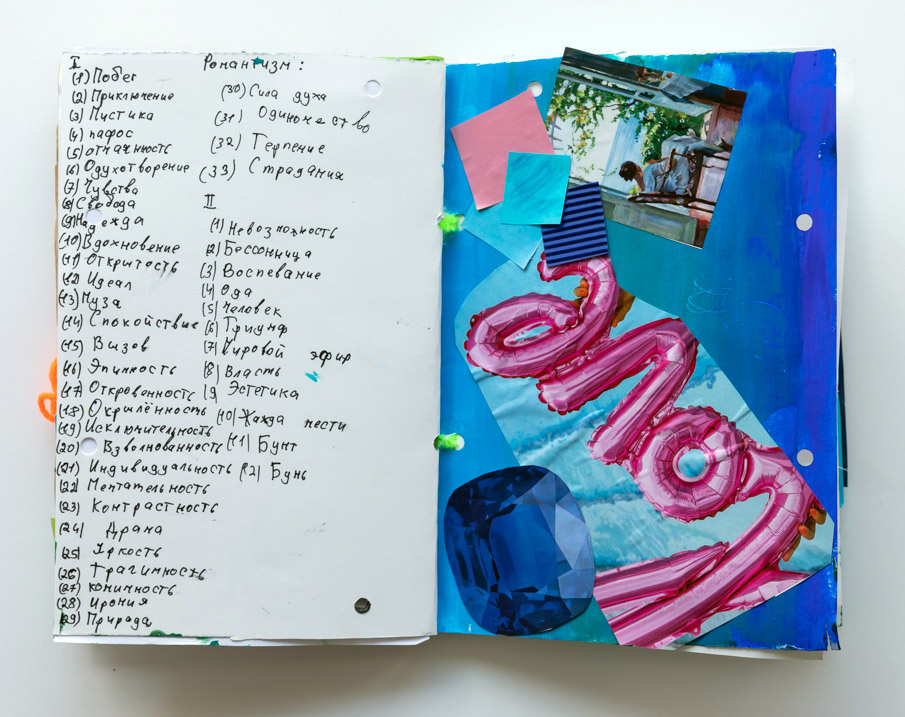 I
(1) Побег
(2) Приключение
(3) Мистика
(4) пафос
(5)
(6) Одухотворение
(7) Чувства
(8) Свобода
(9) Надежда
(10) Вдохновение
(11) Открытость
(12) Идеал
(13) Муза
(14) Спокойствие
(15) Вызов
(16) Эпичность
(17) Откровенность
(18) Окрылённость
(19) Исключительность
(20) Взволнованность
(21) Индивидуальность
(22) Мечтательность
(23) Контрастность
(24) Драма
(25) Яркость
(26) Трагичность
(27) комичность
(28) Ирония
(29) Прирада
Романтизм:
(30) Сила духа
(31) Одиночество
(32) Терпение
(33) Страдания
II
(1) Невозможность
(2) Бессонница
(3) Воспевание
(4) Ода
(5) Человек
(6) Триумф
(7) Мировой эфир
(8) Власть
(9) Эстетика
(10) Жажда мести
(11) Бунт
(12) Бунь
love